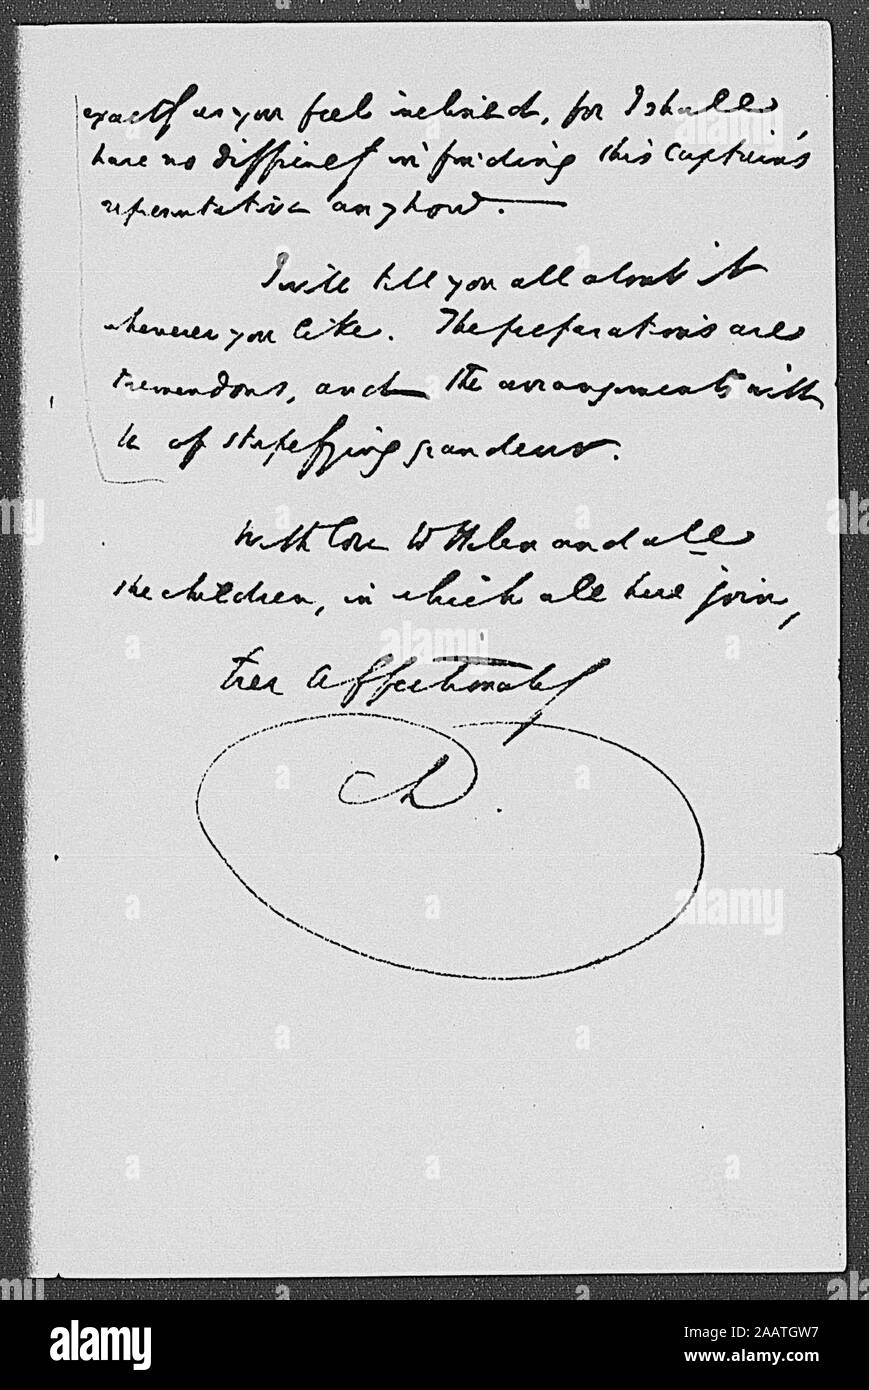 exactly as you feel inclined, for I shall
have no difficulty in finding this Captain's
representative anyhow. —
I will tell you all about it
whenever you like. The preparations are
tremendous, and the arrangements will
be of stupefying grandeur.
With love to Helen and all
the children, in which all here join,
Ever affectionately
CD.
alamy
Image ID: 2AATGW7
www.alamy.com